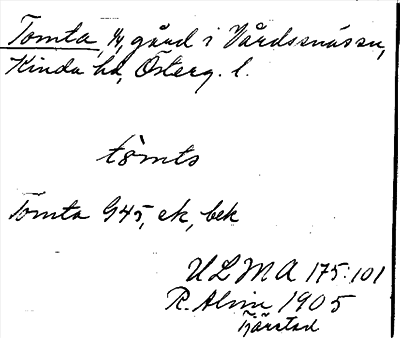 Tomta, 1/4, gård i Vårdsnäs sn,
Kinda hd, Österg. l.
tòmta
Tomta G45, ek, bek
ULMA 175:101
R. Alvin 1905
Tjärstad